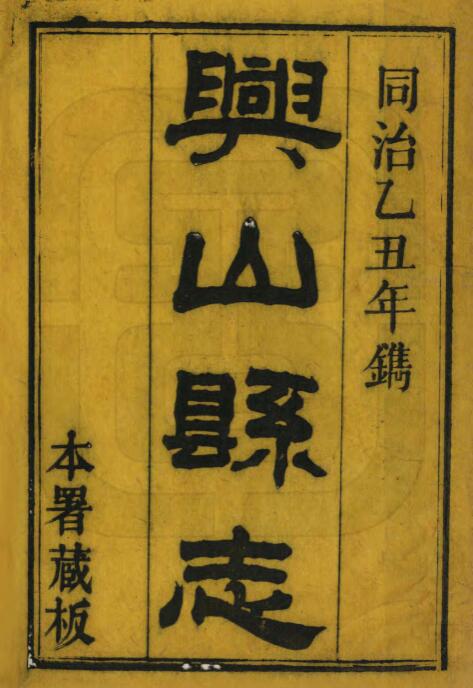 同治乙丑年鐫
興山縣志
本署蔵板